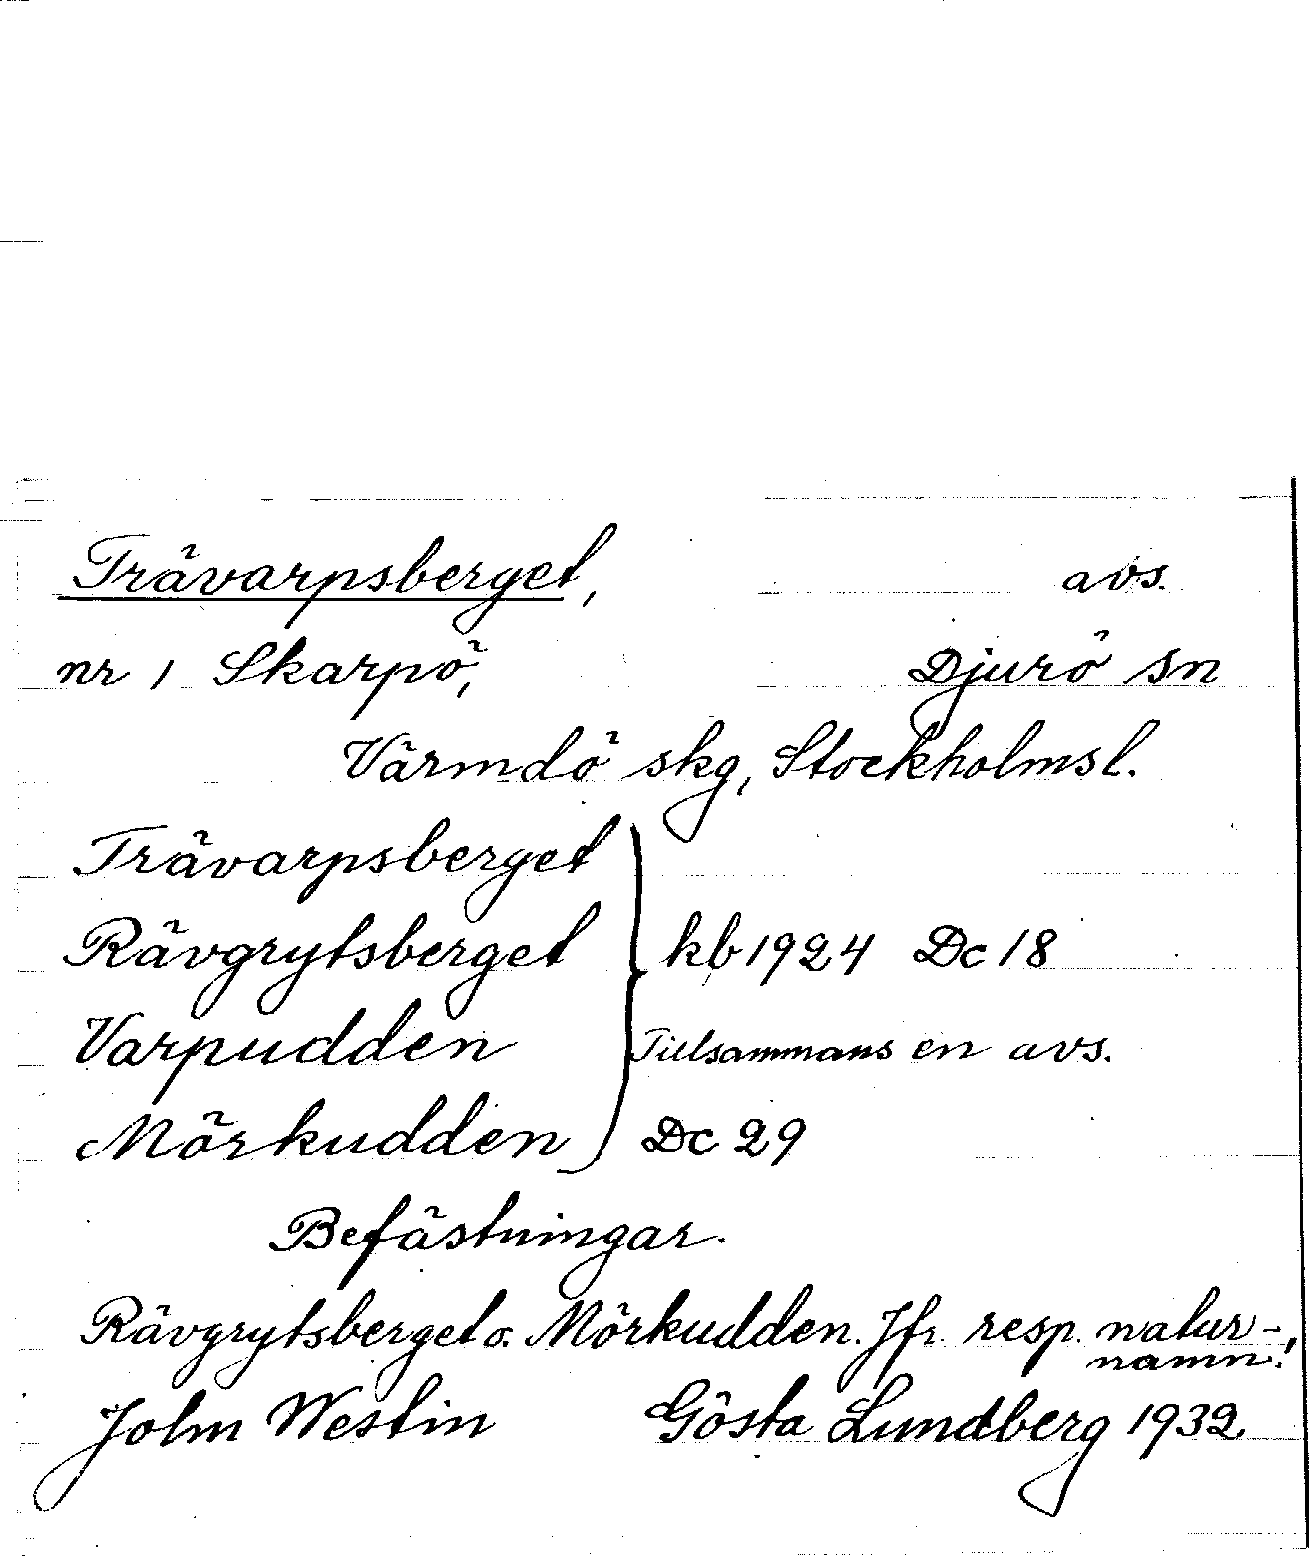 Trävarpsberget, avs.
nr 1 Skarpö, Djurö sn
Värmdö skg, Stockholmsl.
Trävarpsberget
Rävgrytsberget } kb 1924 Dc 18
Varpudden Tillsammans en avs.
Mörkudden Dc 29
Befästningar.
Rävgrytsberget o. Mörkudden. Jfr. resp. natur-
namn!
John Westin Gösta Lundberg 1932